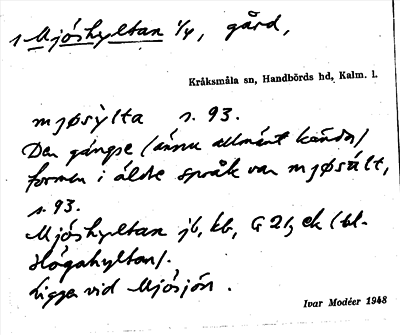 1 Mjöshyltan 1/4, gård,
Kråksmåla sn, Handbörds hd, Kalm. l.
mjøsỳlta s. 93.
Den gängse (ännu allmänt kända)
formen i äldre språk var mjøsùlt,
s. 93.
Mjöshyltan jb, kb, G 21, ek (bl.
Högahyltan).
Ligger vid Mjösjön.
Ivar Modéer 1948